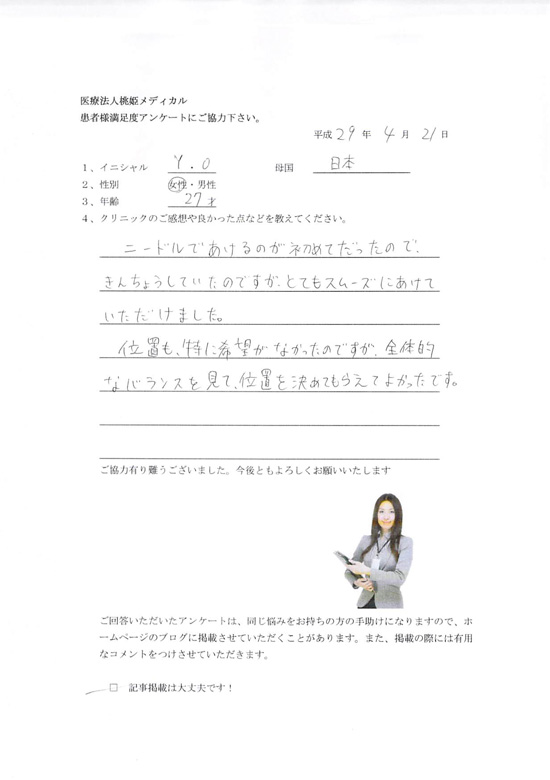 医療法人桃姫メディカル
患者様満足度アンケートにご協力下さい。
平成 29 年 4 月 21 日
1、イニシャル Y.O 母国 日本
2、性別 女性・男性
3、年齢 27才
4、クリニックのご感想や良かった点などを教えてください。
ニードルであけるのが初めてだったので、
きんちょうしていたのですが、とてもスムーズにあけて
いただけました。
位置も、特に希望がなかったのですが、全体的
なバランスを見て、位置を決めてもらえてよかったです。
ご協力有り難うございました。今後ともよろしくお願いいたします
ご回答いただいたアンケートは、同じ悩みをお持ちの方の手助けになりますので、ホ
ームページのブログに掲載させていただくことがあります。また、掲載の際には有用
なコメントをつけさせていただきます。
□ 記事掲載は大丈夫です！